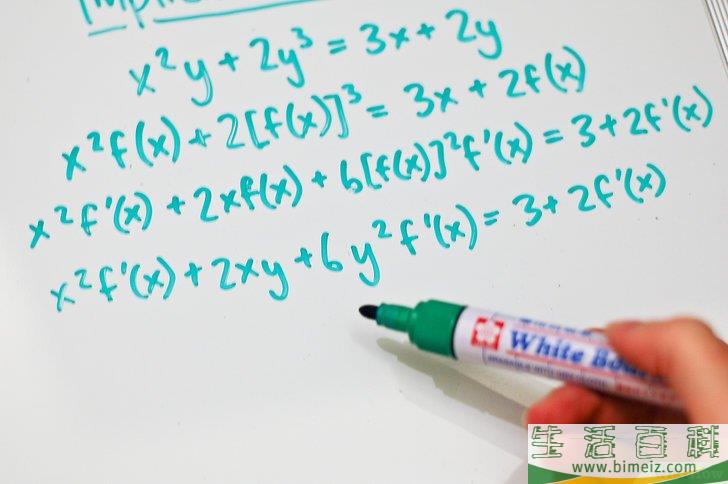 x²y + 2y³ = 3x + 2y
x²f(x) + 2[f(x)]³ = 3x + 2f(x)
x²f'(x) + 2xf(x) + 6[f(x)]²f'(x) = 3 + 2f'(x)
x²f'(x) + 2xy + 6y²f'(x) = 3 + 2f'(x)
White Boa
生活百科
www.bimeiz.com